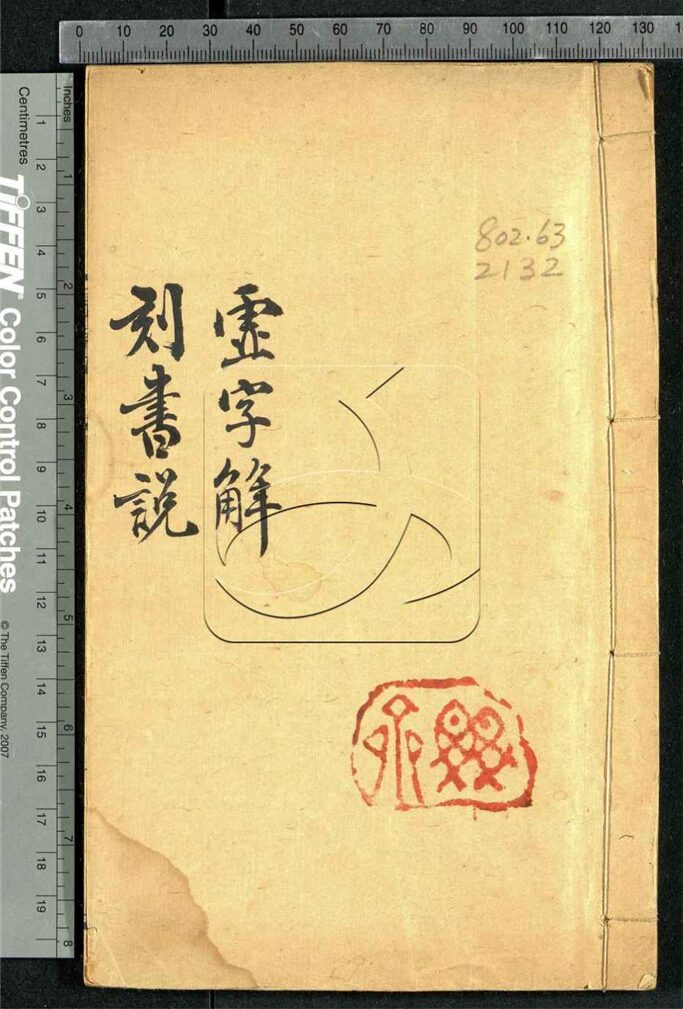 0 10 20 30 40 50 60 70 80 90 100 110 120 130
inches
1 2 3 4 5 6 7 8
Centimetres
1 2 3 4 5 6 7 8 9 10 11 12 13 14 15 16 17 18 19
TIFFEN Color Control Patches
© The Tiffen Company, 2007
802.63
2132
虛字解
刻書說